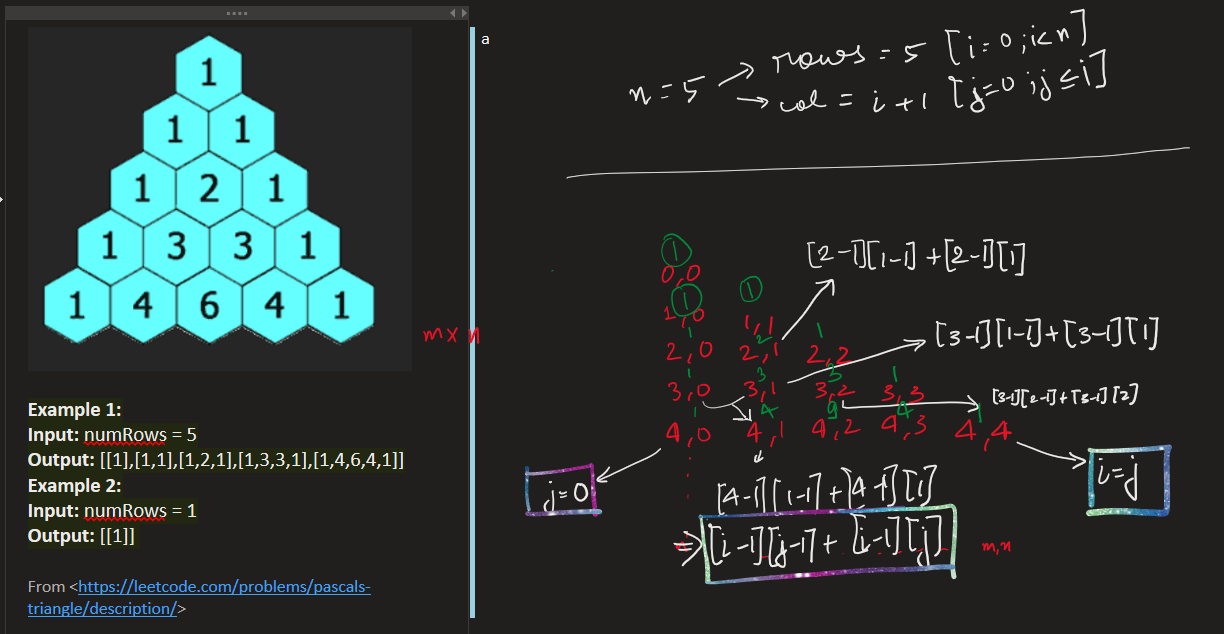 1
1 1
1 2 1
1 3 3 1
1 4 6 4 1
m x n
Example 1:
Input: numRows = 5
Output: [[1],[1,1],[1,2,1],[1,3,3,1],[1,4,6,4,1]]
Example 2:
Input: numRows = 1
Output: [[1]]
From <https://leetcode.com/problems/pascals-
triangle/description/>
a
n = 5 → rows = 5 [i=0 ; i<n]
→ col = i + 1 [j=0 ; j ≤ i]
1
0,0
[2-1][1-1] + [2-1][1]
1 1
1,0 1,1
1 2 1
2,0 2,1 2,2
[3-1][1-1] + [3-1][1]
1 3 3 1
3,0 3,1 3,2 3,3
[3-1][2-1] + [3-1][2]
1 4 4 1
4,0 4,1 4,2 4,3 4,4
j=0
i=j
[4-1][1-1] + [4-1][1]
⇒ [i-1][j-1] + [i-1][j]
m,n